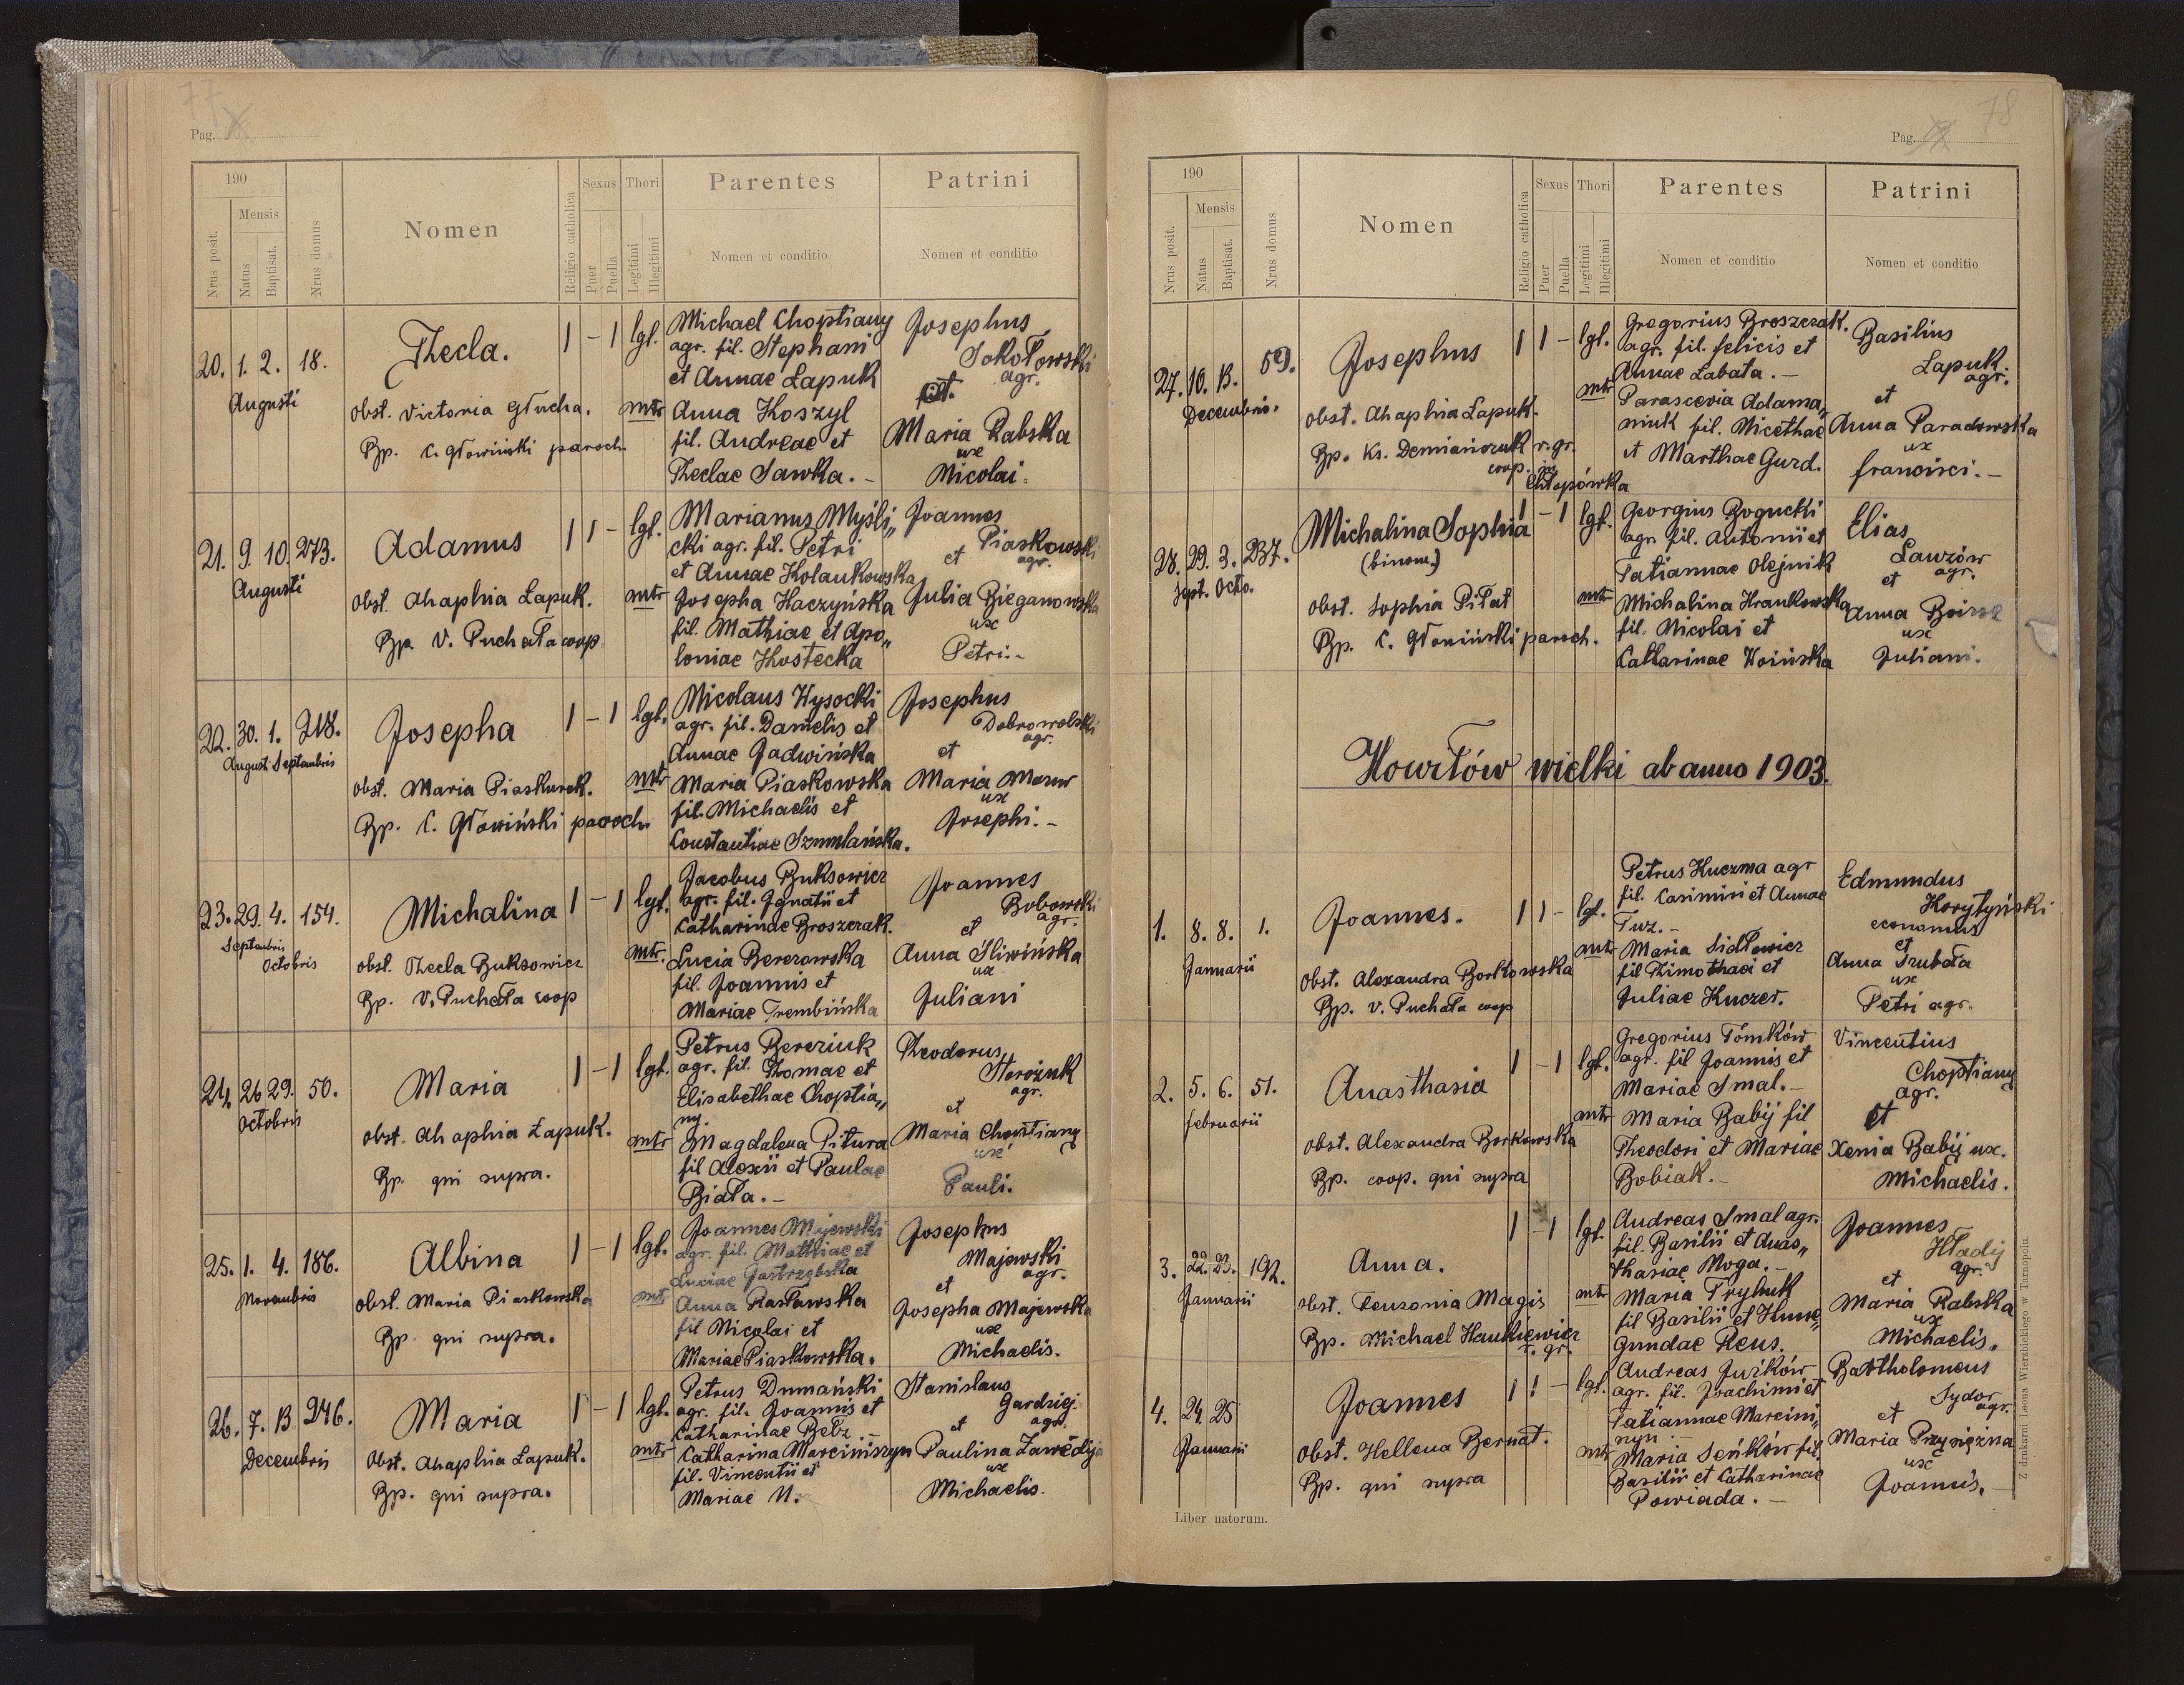 77
Pag.
190
Nrus posit.
Mensis
Natus
Baptisat.
Nrus domus
Nomen
Religio catholica
Sexus
Puer
Puella
Thori
Legitimi
Illegitimi
Parentes
Nomen et conditio
Patrini
Nomen et conditio
20. 1. 2. 18.
Augusti
Thecla.
obst. Victoria Głucha.
Bp. C. Głowiński paroch
1 – 1 lgl.
Michael Choptiany
agr. fil. Stephani
et Annae Łapuk
mtr Anna Koszyl
fil. Andreae et
Theclae Sawka. –
Josephus
Sokołowski
agr.
et.
Maria Rabska
ux
Nicolai.
21. 9. 10. 273.
Augusti
Adamus
obst. Ahaphia Łapuk.
Bp. V. Puchała coop
1 1 – lgl.
Marianus Myśli„
cki agr. fil. Petri
et Annae Kolankowska
mtr Josepha Haczyńska
fil. Mathiae et Apo„
loniae Kostecka
Joannes
Piaskowski
et agr.
Julia Bieganowska
ux
Petri. –
22. 30. 1. 218.
Augusti Septembris
Josepha
obst. Maria Piaskurek.
Bp. C. Głowiński paroch
1 – 1 lgl.
Nicolaus Wysocki
agr. fil. Danielis et
Annae Jadwińska
mtr Maria Piaskowska
fil. Michaelis et
Constantiae Szumlańska.
Josephus
Dobrowolski
agr.
et
Maria Mazur
ux
Josephi. –
23. 29. 4. 154.
Septembris
Octobris
Michalina
obst. Thecla Buksowicz
Bp. V. Puchała coop
1 – 1 lgl.
Jacobus Buksowicz
agr. fil. Ignatii et
Catharinae Broszczak.
mtr. Lucia Berezowska
fil. Joannis et
Mariae Trembińska
Joannes
Bobowski
agr.
et
Anna Śliwińska
ux
Juliani
24. 26 29. 50.
Octobris
Maria
obst. Ahaphia Łapuk.
Bp. qui supra.
1 – 1 lgl.
Petrus Bereziuk
agr. fil. Thomae et
Elisabethae Choptia„
ny.
mtr Magdalena Pitura
fil Alexii et Paulae
Biała. –
Theodorus
Storożuk
agr.
et
Maria Choptiany
ux
Pauli.
25. 1. 4. 186.
Novembris
Albina
obst. Maria Piaskowska
Bp. qui supra.
1 – 1 lgl.
Joannes Majewski
agr. fil. Matthiae et
Luciae Jastrzębska
mtr Anna Rasławska
fil Nicolai et
Mariae Piaskowska.
Josephus
Majewski
agr.
et
Josepha Majewska
ux
Michaelis.
26. 7. 13 246.
Decembris
Maria
Obst. Ahaphia Łapuk.
Bp. qui supra.
1 – 1 lgl.
Petrus Dumański
agr. fil. Joannis et
Catharinae Bełz. –
mtr Catharina Marciniszyn
fil. Vincentii et
Mariae N.
Stanislaus
Gardziej
agr.
et
Paulina Zawedija
ux
Michaelis.
78
Pag.
190
Nrus posit.
Mensis
Natus
Baptisat.
Nrus domus
Nomen
Religio catholica
Sexus
Puer
Puella
Thori
Legitimi
Illegitimi
Parentes
Nomen et conditio
Patrini
Nomen et conditio
27. 10. 13. 59.
Decembris.
Josephus
obst. Ahaphia Łapuk.
Bp. Ks. Demiańczuk r. gr.
coop. in
Chłopówka
1 1 – lgl.
Gregorius Broszczak.
agr. fil. Felicis et
Annae Labata. –
mtr Parascevia Adama„
niuk fil. Nicethae
et Marthae Gurd.
Basilius
Łapuk.
agr.
et
Anna Paradowska
ux
Francisci. –
28. 29. 3. 237.
Sept. Octo.
Michalina Sophia
(binom.)
obst. Sophia Piłat
Bp. C. Głowiński paroch.
1 – 1 lgl.
Georgius Bogucki
agr. fil. Antonii et
Tatiannae Olejnik
mtr Michalina Hrankowska
fil. Nicolai et
Catharinae Woińska
Elias
Ławzów
agr.
et
Anna
ux
Juliani.
Howiłów wielki ab anno 1903.
1. 8. 8. 1.
Januarii
Joannes.
obst. Alexandra Borkowska
Bp. V. Puchała coop
1 1 – lgl.
Petrus Kuczma agr
fil. Casimiri et Annae
Tuz. –
mtr Maria Sidłowicz
fil Timothaei et
Juliae Kuczer.
Edmundus
Korytyński
economus
et
Anna Trubała
ux
Petri agr.
2. 5. 6. 51.
Februarii
Anasthasia
obst. Alexandra Borkowska
Bp. coop. qui supra
1 – 1 lgl.
Gregorius Tomków
agr. fil Joannis et
Mariae Smal. –
mtr Maria Babij fil
Theodori et Mariae
Bobiak. –
Vincentius
Choptiany
agr.
et
Xenia Babij ux.
Michaelis.
3. 22. 23. 192.
Januarii
Anna.
obst. Feuzonia Magis
Bp. Michael Hankiewicz
r. gr.
1 – 1 lgl.
Andreas Smal agr.
fil. Basilii et Anas„
thasiae Moga. –
mtr Maria Tryhuk
fil Basilii et Kune„
gundae Reus.
Joannes
Hładij
agr.
et
Maria Rabska
ux
Michaelis.
4. 24. 25
Januarii
Joannes
obst. Hellena Bernat.
Bp. qui supra
1 1 – lgl.
Andreas Jurków
agr. fil. Joachimi et
Tatiannae Marcini„
szyn –
mtr Maria Seńków fil.
Basilii et Catharinae
Powiada. –
Bartholomeus
Sydor
agr.
et
Maria Przysiężna
ux
Joannis.
Liber natorum.
Z drukarni Leona Wierzbickiego w Tarnopolu.